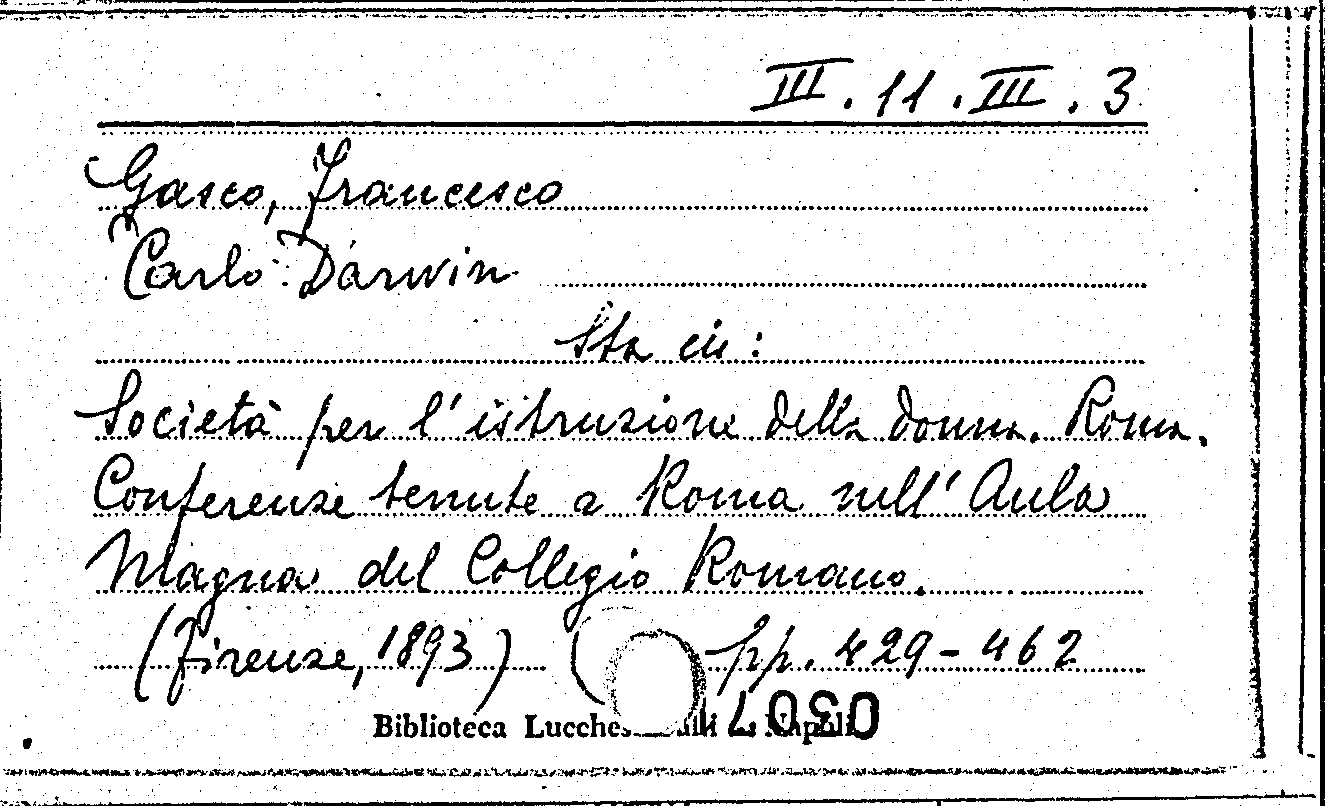 III. 11. III. 3
Gasco, Francesco
Carlo Darwin
Sta in:
Società per l'istruzione della donna. Roma.
Conferenze tenute a Roma nell'Aula
Magna del Collegio Romano.
(Firenze, 1893) ( pp. 429-462
Biblioteca